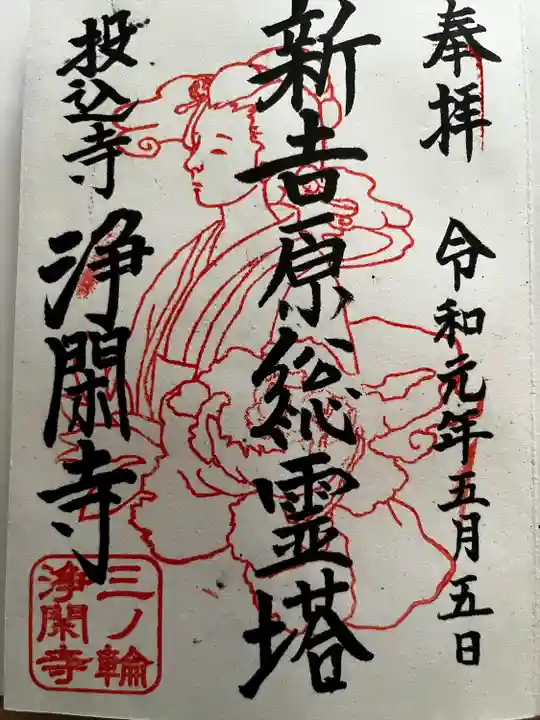 奉拝 令和元年五月五日
新吉原総霊塔
投込寺 浄閑寺
三ノ輪
浄閑寺